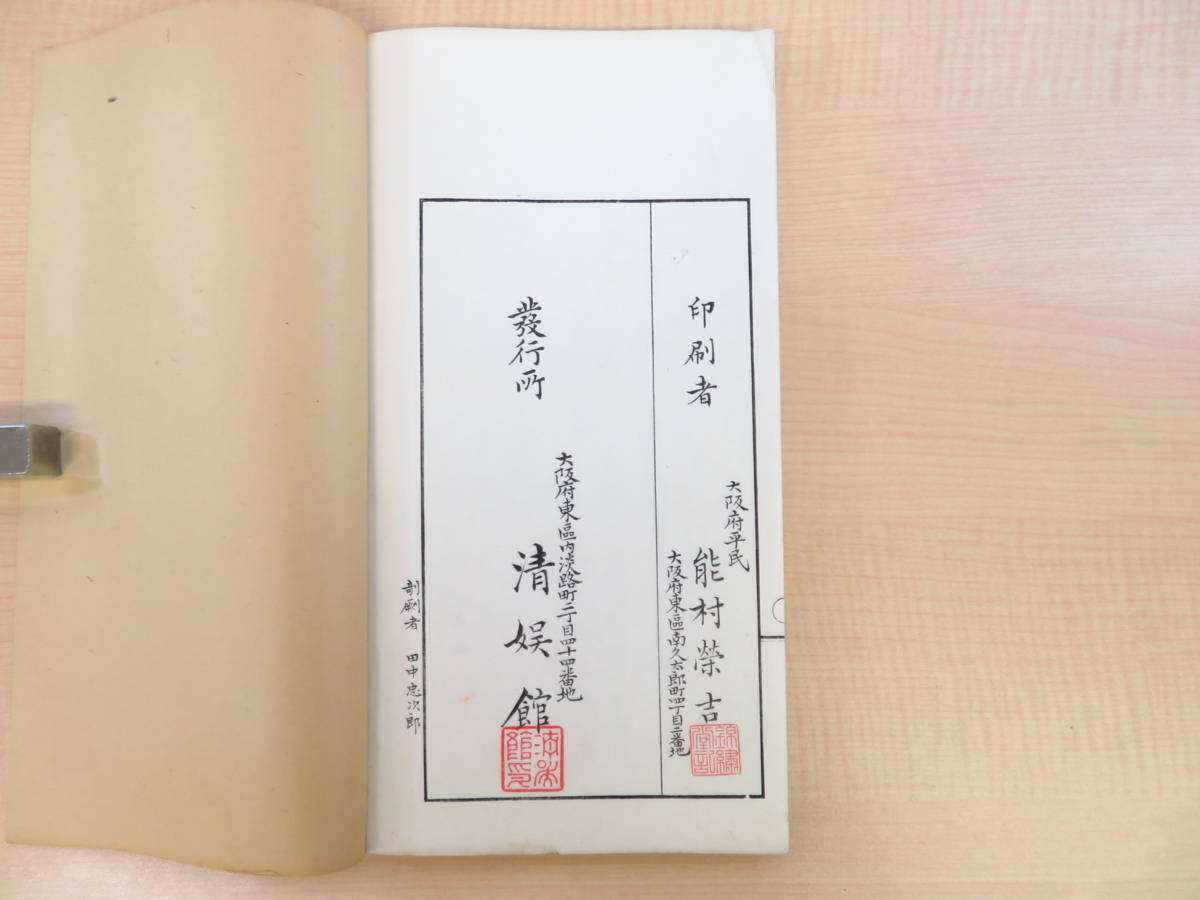 印刷者
大阪府平民
能村榮吉
大阪府東區南久太郎町四丁目二番地
發行所
大阪府東區内淡路町二丁目四十四番地
清娯館
剞劂者 田中忠次郎